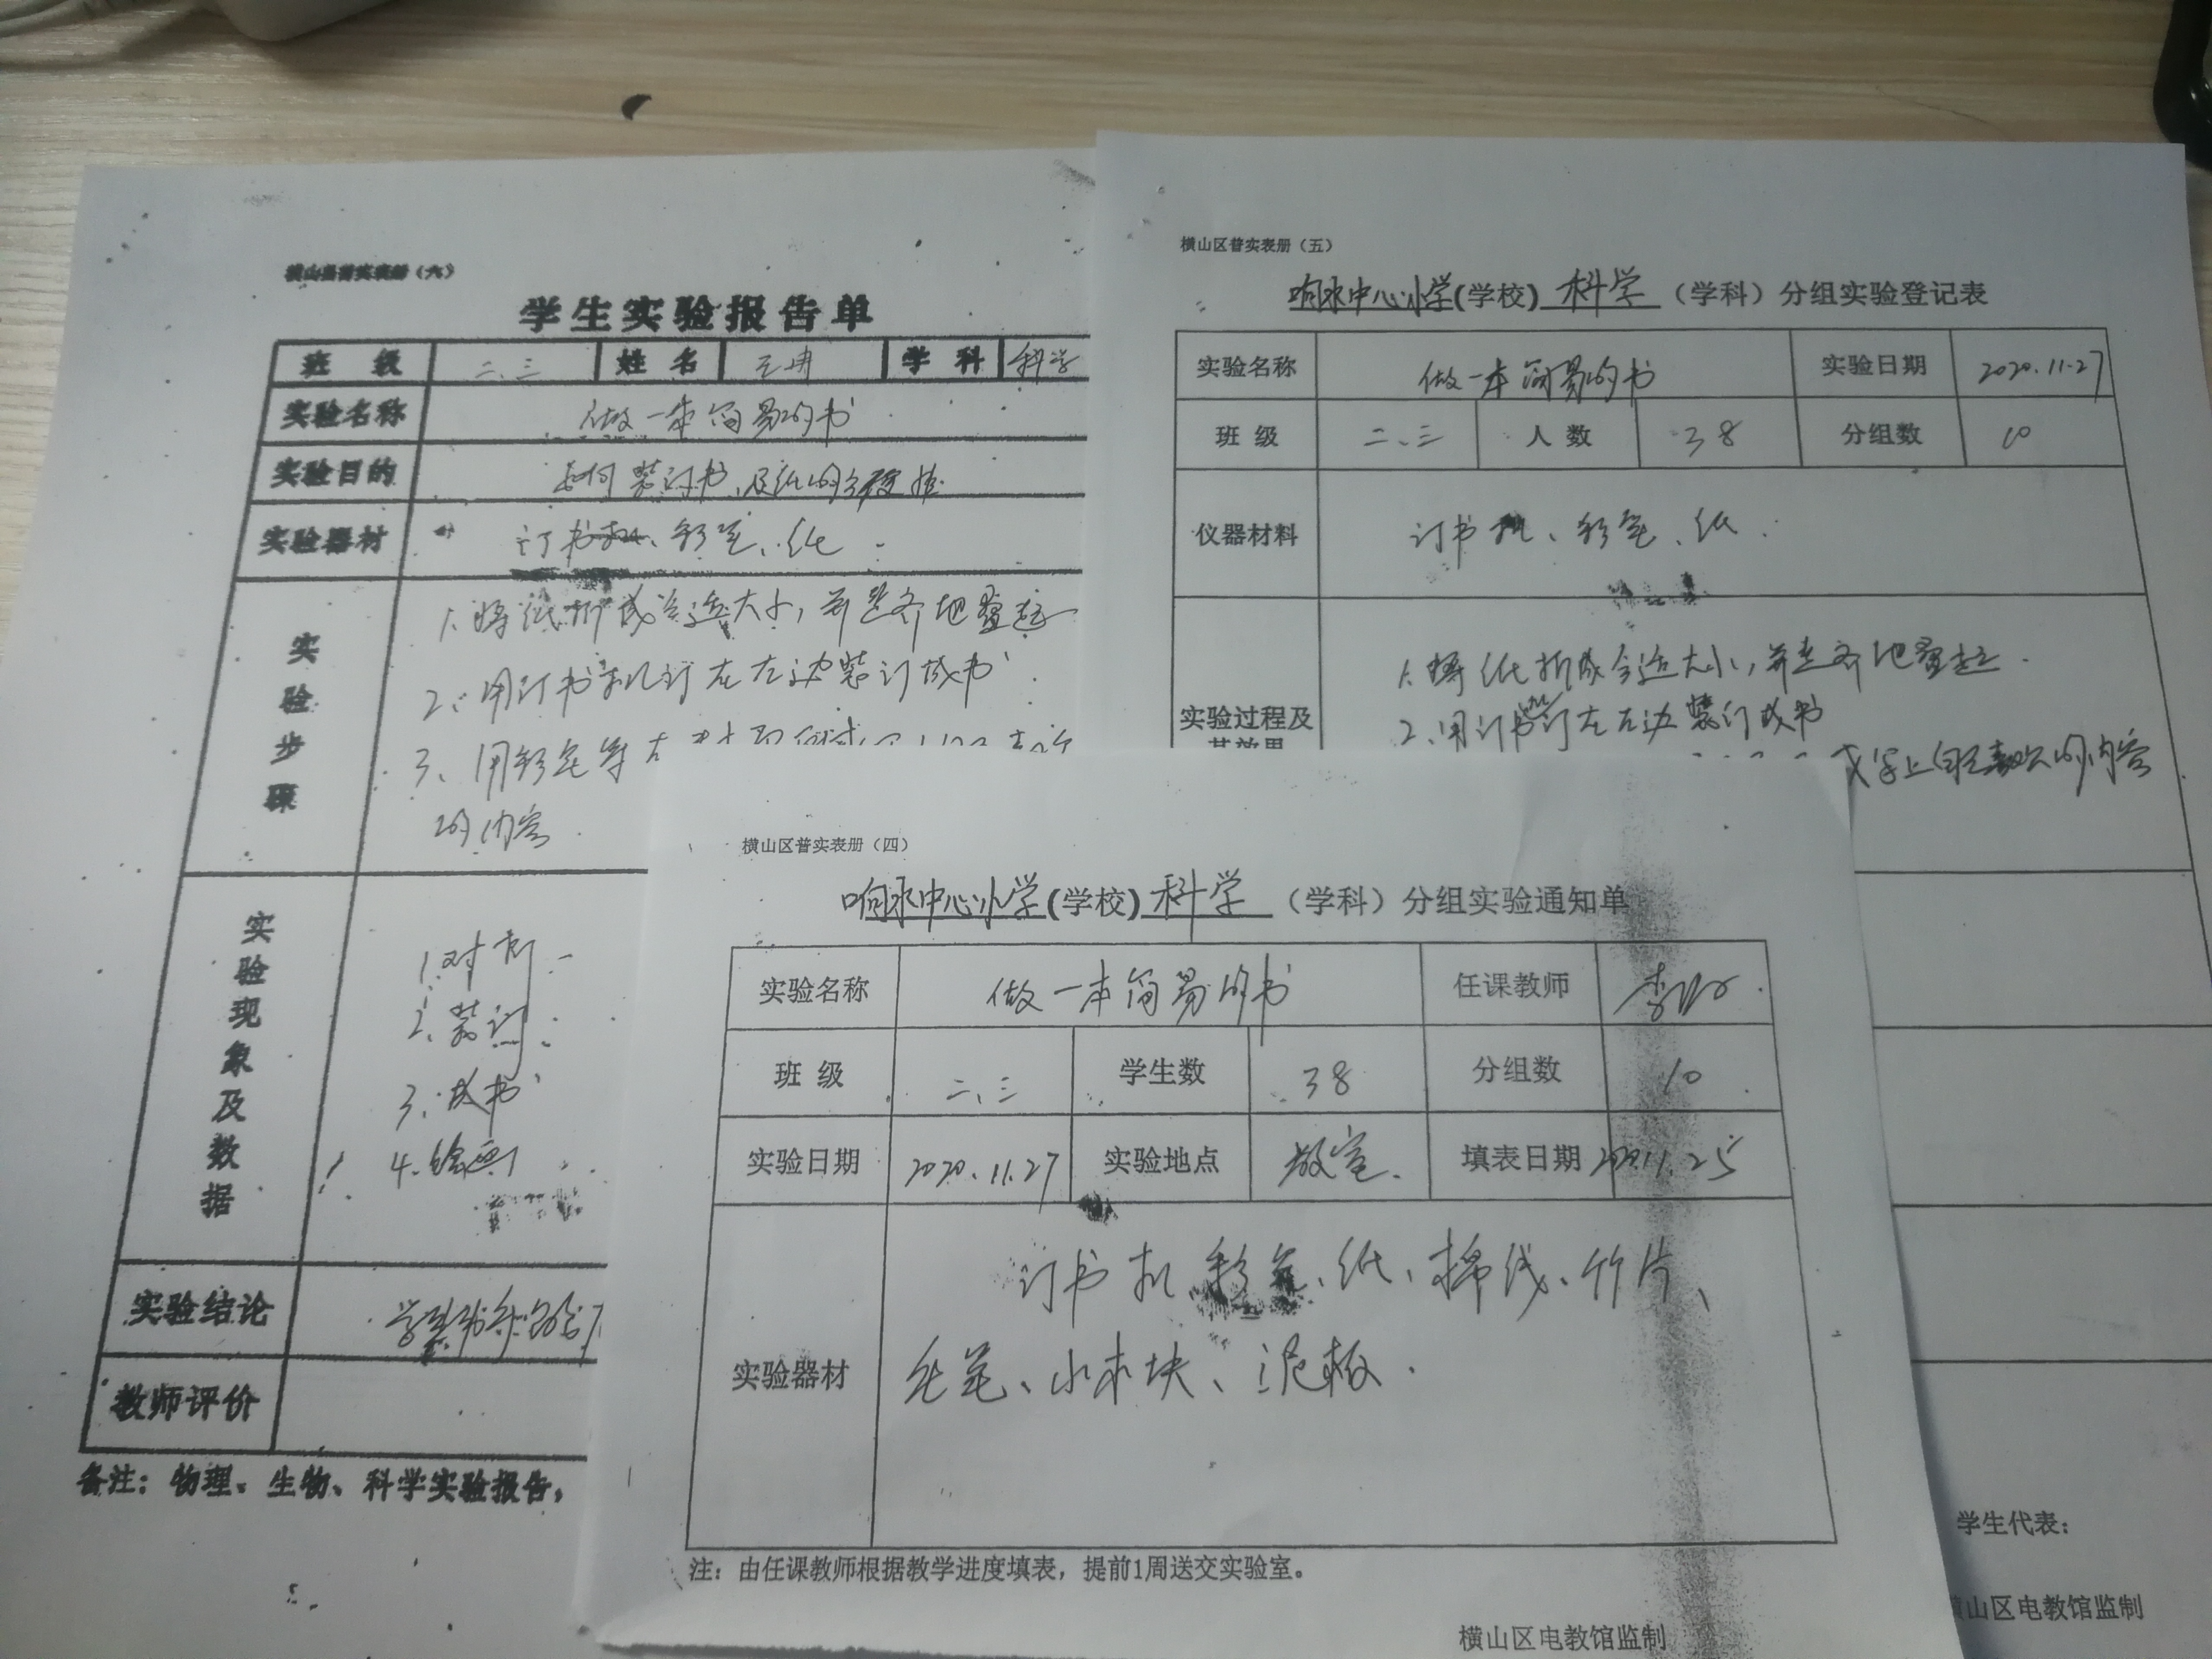 横山县普实表册（六）
学生实验报告单
班 级 二、三 姓 名 学 科 科学
实验名称 做一本简易的书
实验目的 如何装订书
实验器材 订书机、彩笔、纸
实验步骤
1、将纸折成合适大小，并整齐地叠起
2、用订书机订在左边装订成书
3、用彩笔等在
的内容
实验现象及数据
1、对折
2、装订
3、成书
4、绘画
实验结论
教师评价
备注：物理、生物、科学实验报告，
横山区普实表册（五）
响水中心小学(学校) 科学 （学科）分组实验登记表
实验名称 做一本简易的书 实验日期 2020.11.27
班 级 二、三 人 数 38 分组数 10
仪器材料 订书机、彩笔、纸.
实验过程及其效果
1、将纸折成合适大小，并整齐地叠起.
2、用订书订在左边装订成书
或写上自己喜欢的内容
学生代表：
横山区电教馆监制
横山区普实表册（四）
响水中心小学(学校) 科学 （学科）分组实验通知单
实验名称 做一本简易的书 任课教师
班 级 二、三 学生数 38 分组数 10
实验日期 2020.11.27 实验地点 教室. 填表日期 2020.11.25
实验器材 订书机、彩笔、纸、棉线、竹片、
毛笔、小木块、泥板.
注：由任课教师根据教学进度填表，提前1周送交实验室。
横山区电教馆监制